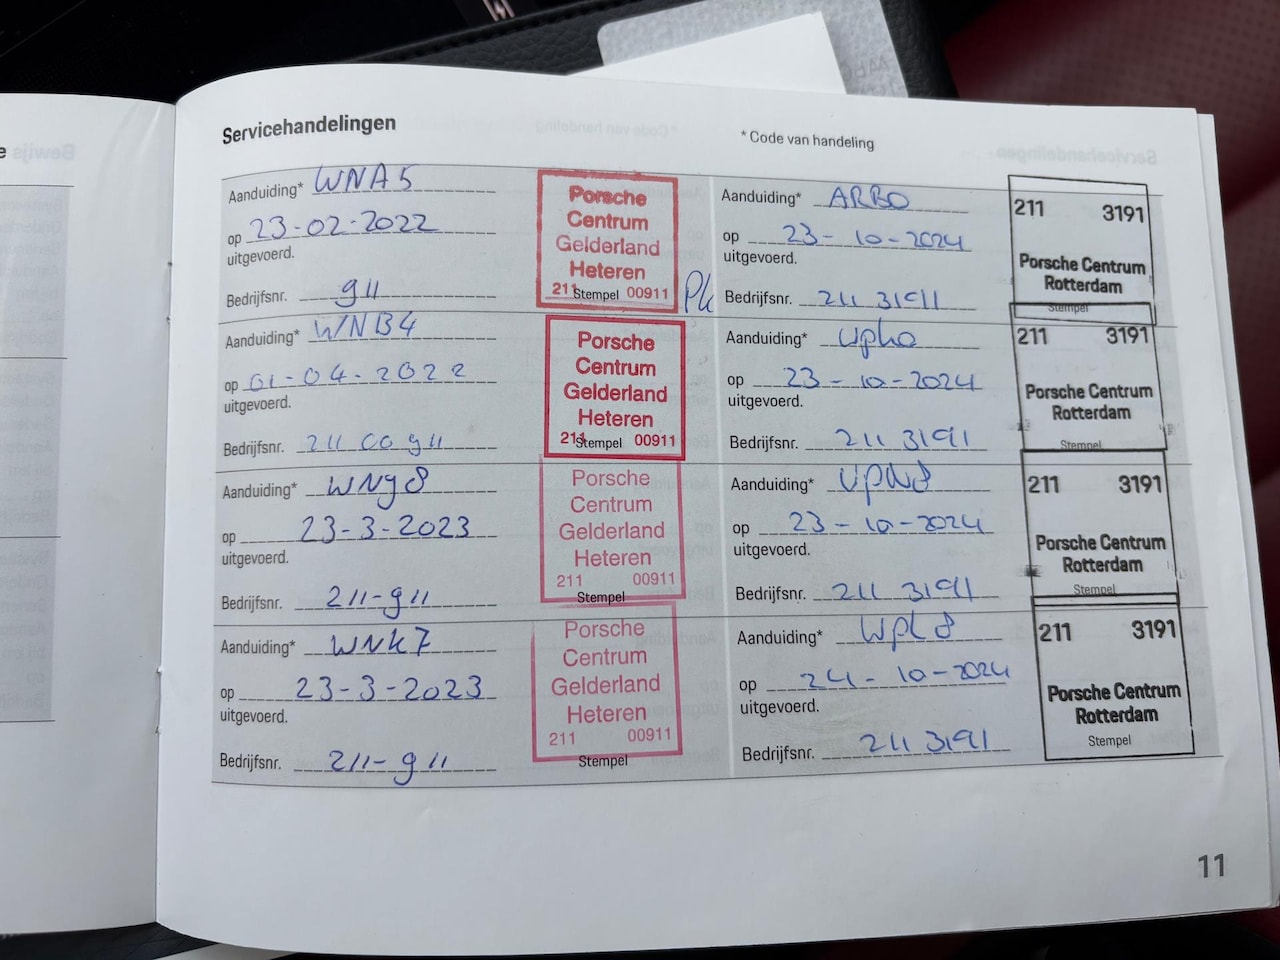 Servicehandelingen
* Code van handeling
Aanduiding* WNA5
op 23-02-2022
uitgevoerd.
Bedrijfsnr. 911
Porsche
Centrum
Gelderland
Heteren
211 Stempel 00911
Aanduiding* WNB4
op 01-04-2022
uitgevoerd.
Bedrijfsnr. 211 00911
Porsche
Centrum
Gelderland
Heteren
211 Stempel 00911
Aanduiding* WNY8
op 23-3-2023
uitgevoerd.
Bedrijfsnr. 211-911
Porsche
Centrum
Gelderland
Heteren
211 00911
Stempel
Aanduiding* WNK7
op 23-3-2023
uitgevoerd.
Bedrijfsnr. 211-911
Porsche
Centrum
Gelderland
Heteren
211 00911
Stempel
Aanduiding* ARBO
op 23-10-2024
uitgevoerd.
Bedrijfsnr. 211 3191
211 3191
Porsche Centrum
Rotterdam
Stempel
Aanduiding*
op 23-10-2024
uitgevoerd.
Bedrijfsnr. 211 3191
211 3191
Porsche Centrum
Rotterdam
Stempel
Aanduiding*
op 23-10-2024
uitgevoerd.
Bedrijfsnr. 211 3191
211 3191
Porsche Centrum
Rotterdam
Stempel
Aanduiding* WPL8
op 24-10-2024
uitgevoerd.
Bedrijfsnr. 211 3191
211 3191
Porsche Centrum
Rotterdam
Stempel
11